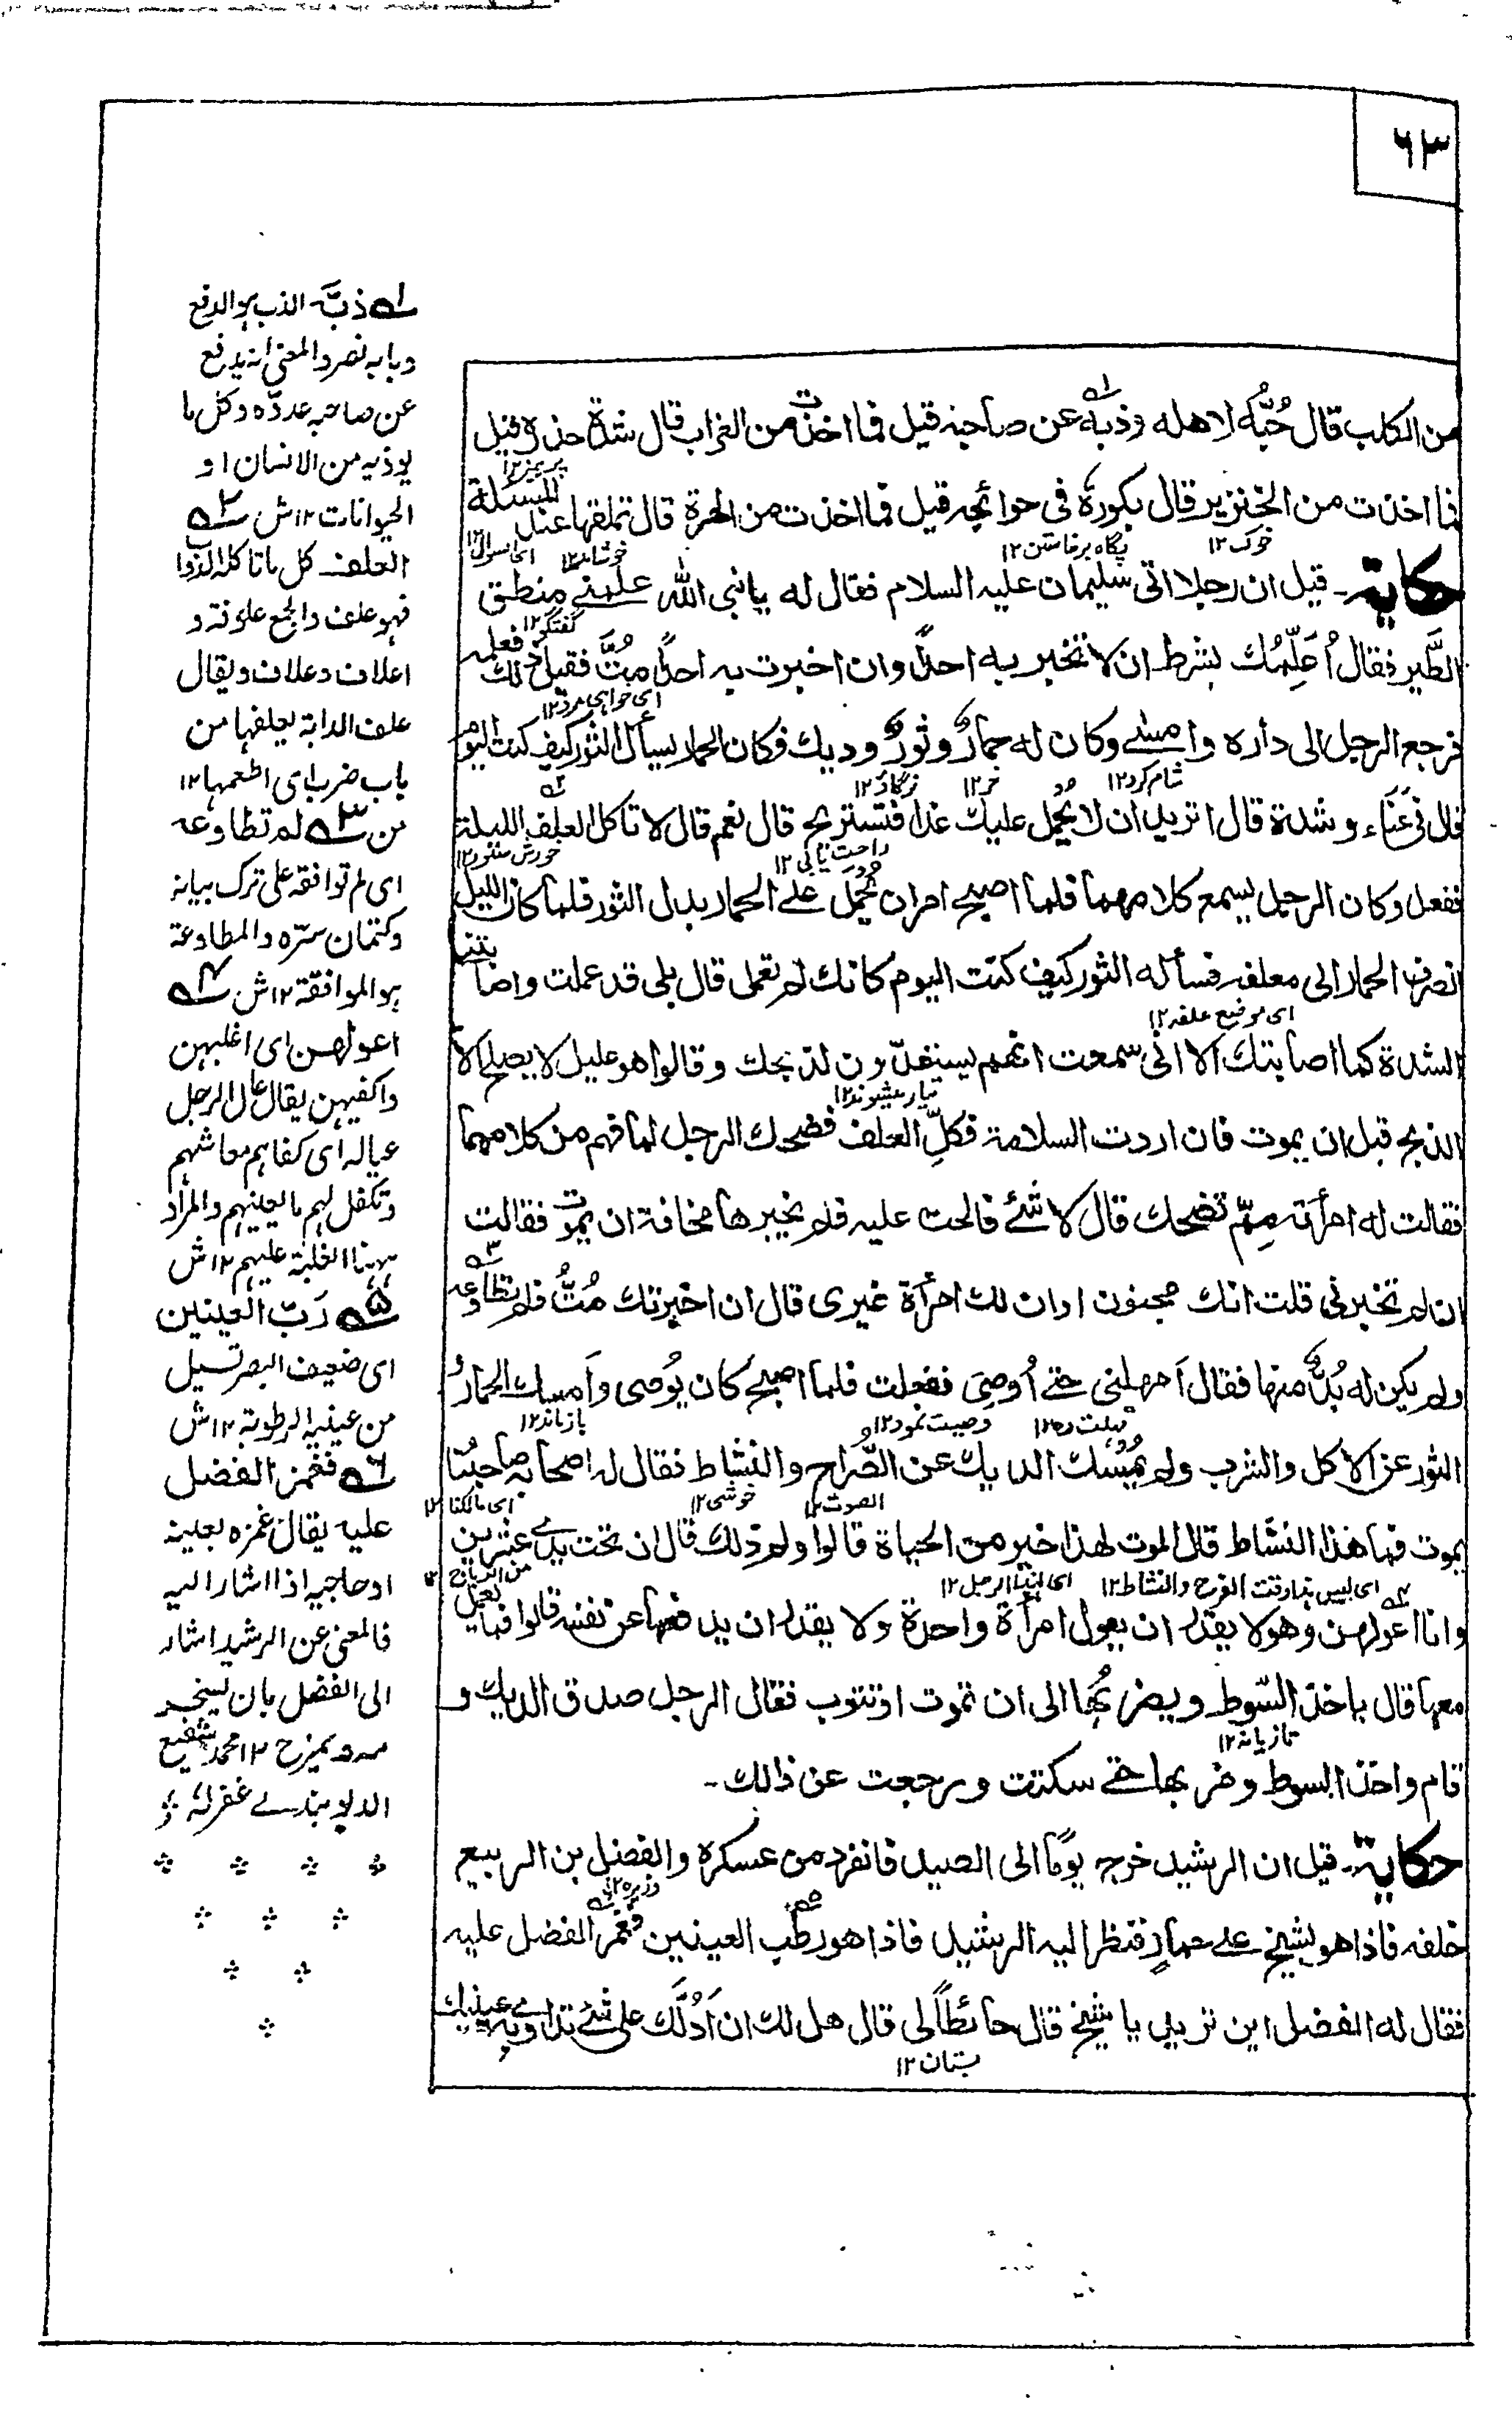 ٦٣
من الكلب قال حُبُّه لاهله وذبه عن صاحبه قيل فما اخذت من الغراب قال شدة حذره قيل
پرہیز١٢
فما اخذت من الخنزير قال بكورة فى حوائجه قيل فما اخذت من الهرة قال تملقها عند المسئلة
خوک١٢ پگاہ برخاستن١٢ خوشامد١٢
حكاية۔ قيل ان رجلا اتى سليمان عليه السلام فقال له يا نبى الله علمنى منطق
گفتگو١٢
الطَّير فقال اُعَلِّمُك بشرط ان لا تخبر به احدًا وان اخبرت به احدًا مُتَّ فقبل ذلك فعلمه
فرجع الرجل الى داره وامسٰى وكان له حمارٌ وثورٌ وديك فكان الحمار يسأل الثور كيف كنت اليوم
شام کرد١٢ خر١٢ نرگاؤ١٢
قال فى عَنَاء وشدة قال اتريد ان لا يُحمل عليك غدا فتستريح قال نعم قال لا تاكل العلف الليلة
راحت یابی١٢ خورش ستور١٢
ففعل وكان الرجل يسمع كلامهما فلما اصبح امر ان يُحمل على الحمار بدل الثور فلما كان الليل
انصرف الحمار الى معلفه فسأله الثور كيف كنت اليوم كانك لم تعمل قال بلى قد عملت واصابتنى
اى موضع علفه١٢
الشدة كما اصابتك الا انى سمعت انهم يستعدّون لذبحك وقالوا هو عليل لا يصلح الا
تیار میشوند١٢
الذبح قبل ان يموت فان اردت السلامة فكلِ العلف فضحك الرجل لما فهم من كلامهما
فقالت له امرأته مِمّ تضحك قال لا شئ فالحت عليه فلم يخبرها مخافة ان يموت فقالت
ان لم تخبرنى قلت انك مجنون او ان لك امرأة غيرى قال ان اخبرتك مُتُّ فلم تطاوعه
ولم يكن له بُدٌّ منها فقال اَمهلينى حتى اُوصِىَ ففعلت فلما اصبح كان يُوصى واَمسك الحمارُ و
مہلت دہ١٢ وصیت نمود١٢ بازماند١٢
الثور عن الاكل والشرب ولم يُمْسك الديك عن الصُّراخ والنشاط فقال له اصحابه صاحبُنا
الصوت١٢ خوشی١٢ اى مالكنا١٢
يموت فما هذا النشاط قال الموت لهذا خير من الحياة قالوا ولم ذلك قال ان تحت يدى عشرين
اى ليس هذا وقت الفرح والنشاط١٢ اى لهذا الرجل١٢
وانا اعولهن وهو لا يقدر ان يعول امرأة واحدة ولا يقدر ان يدفعها عن نفسه قالوا فما يعمل
معها قال ياخذ السّوط ويضربُها الى ان تموت او تتوب فقال الرجل صدق الديك و
تازیانہ١٢
قام واخذ السوط وضربها حتى سكتت ورجعت عن ذالك۔
حكاية۔ قيل ان الرشيد خرج يومًا الى الصيد فانفرد من عسكره والفضل بن الربيع
وزیرہ١٢
خلفه فاذا هو بشيخ على حمارٍ فنظر اليه الرشيد فاذا هو رطب العينين فغمز الفضل عليه
فقال له الفضل اين تريد يا شيخ قال حائطًا لى قال هل لك ان اَدُلَّك على شئ تداوى به عينيك
بستان١٢
١ــه ذبّه الذب ہو الدفع
وبابه نصر والمعنى انه يدفع
عن صاحبه عدوّه وكل ما
يوذيه من الانسان او
الحيوانات ١٢ش ٢ــه
العلف كل ما تاكله الدواب
فهو علف والجمع علوفة و
اعلاف وعلاف ويقال
علف الدابة يعلفها من
باب ضرب اى اطعمها ١٢
من ٣ــه لم تطاوعه
اى لم توافقه على ترك بيانه
وكتمان سرّه والمطاوعة
ہو الموافقة ١٢ش ٤ــه
اعولهن اى اغلبهن
واكفيهن يقال عال الرجل
عياله اى كفاهم معاشهم
وتكفل لهم ما يعينهم والمراد
ههنا الغلبة عليهم ١٢ش
٥ــه رَبّ العينين
اى ضعيف البصر تسيل
من عينيه الرطوبة ١٢ش
٦ــه فغمز الفضل
عليه يقال غمزه بعينه
او حاجبه اذا اشار اليه
فالمعنى عن الرشيد اشار
الى الفضل بان يسخر
منه ويمزح ١٢ محمد شفيع
الديوبندى غفر له